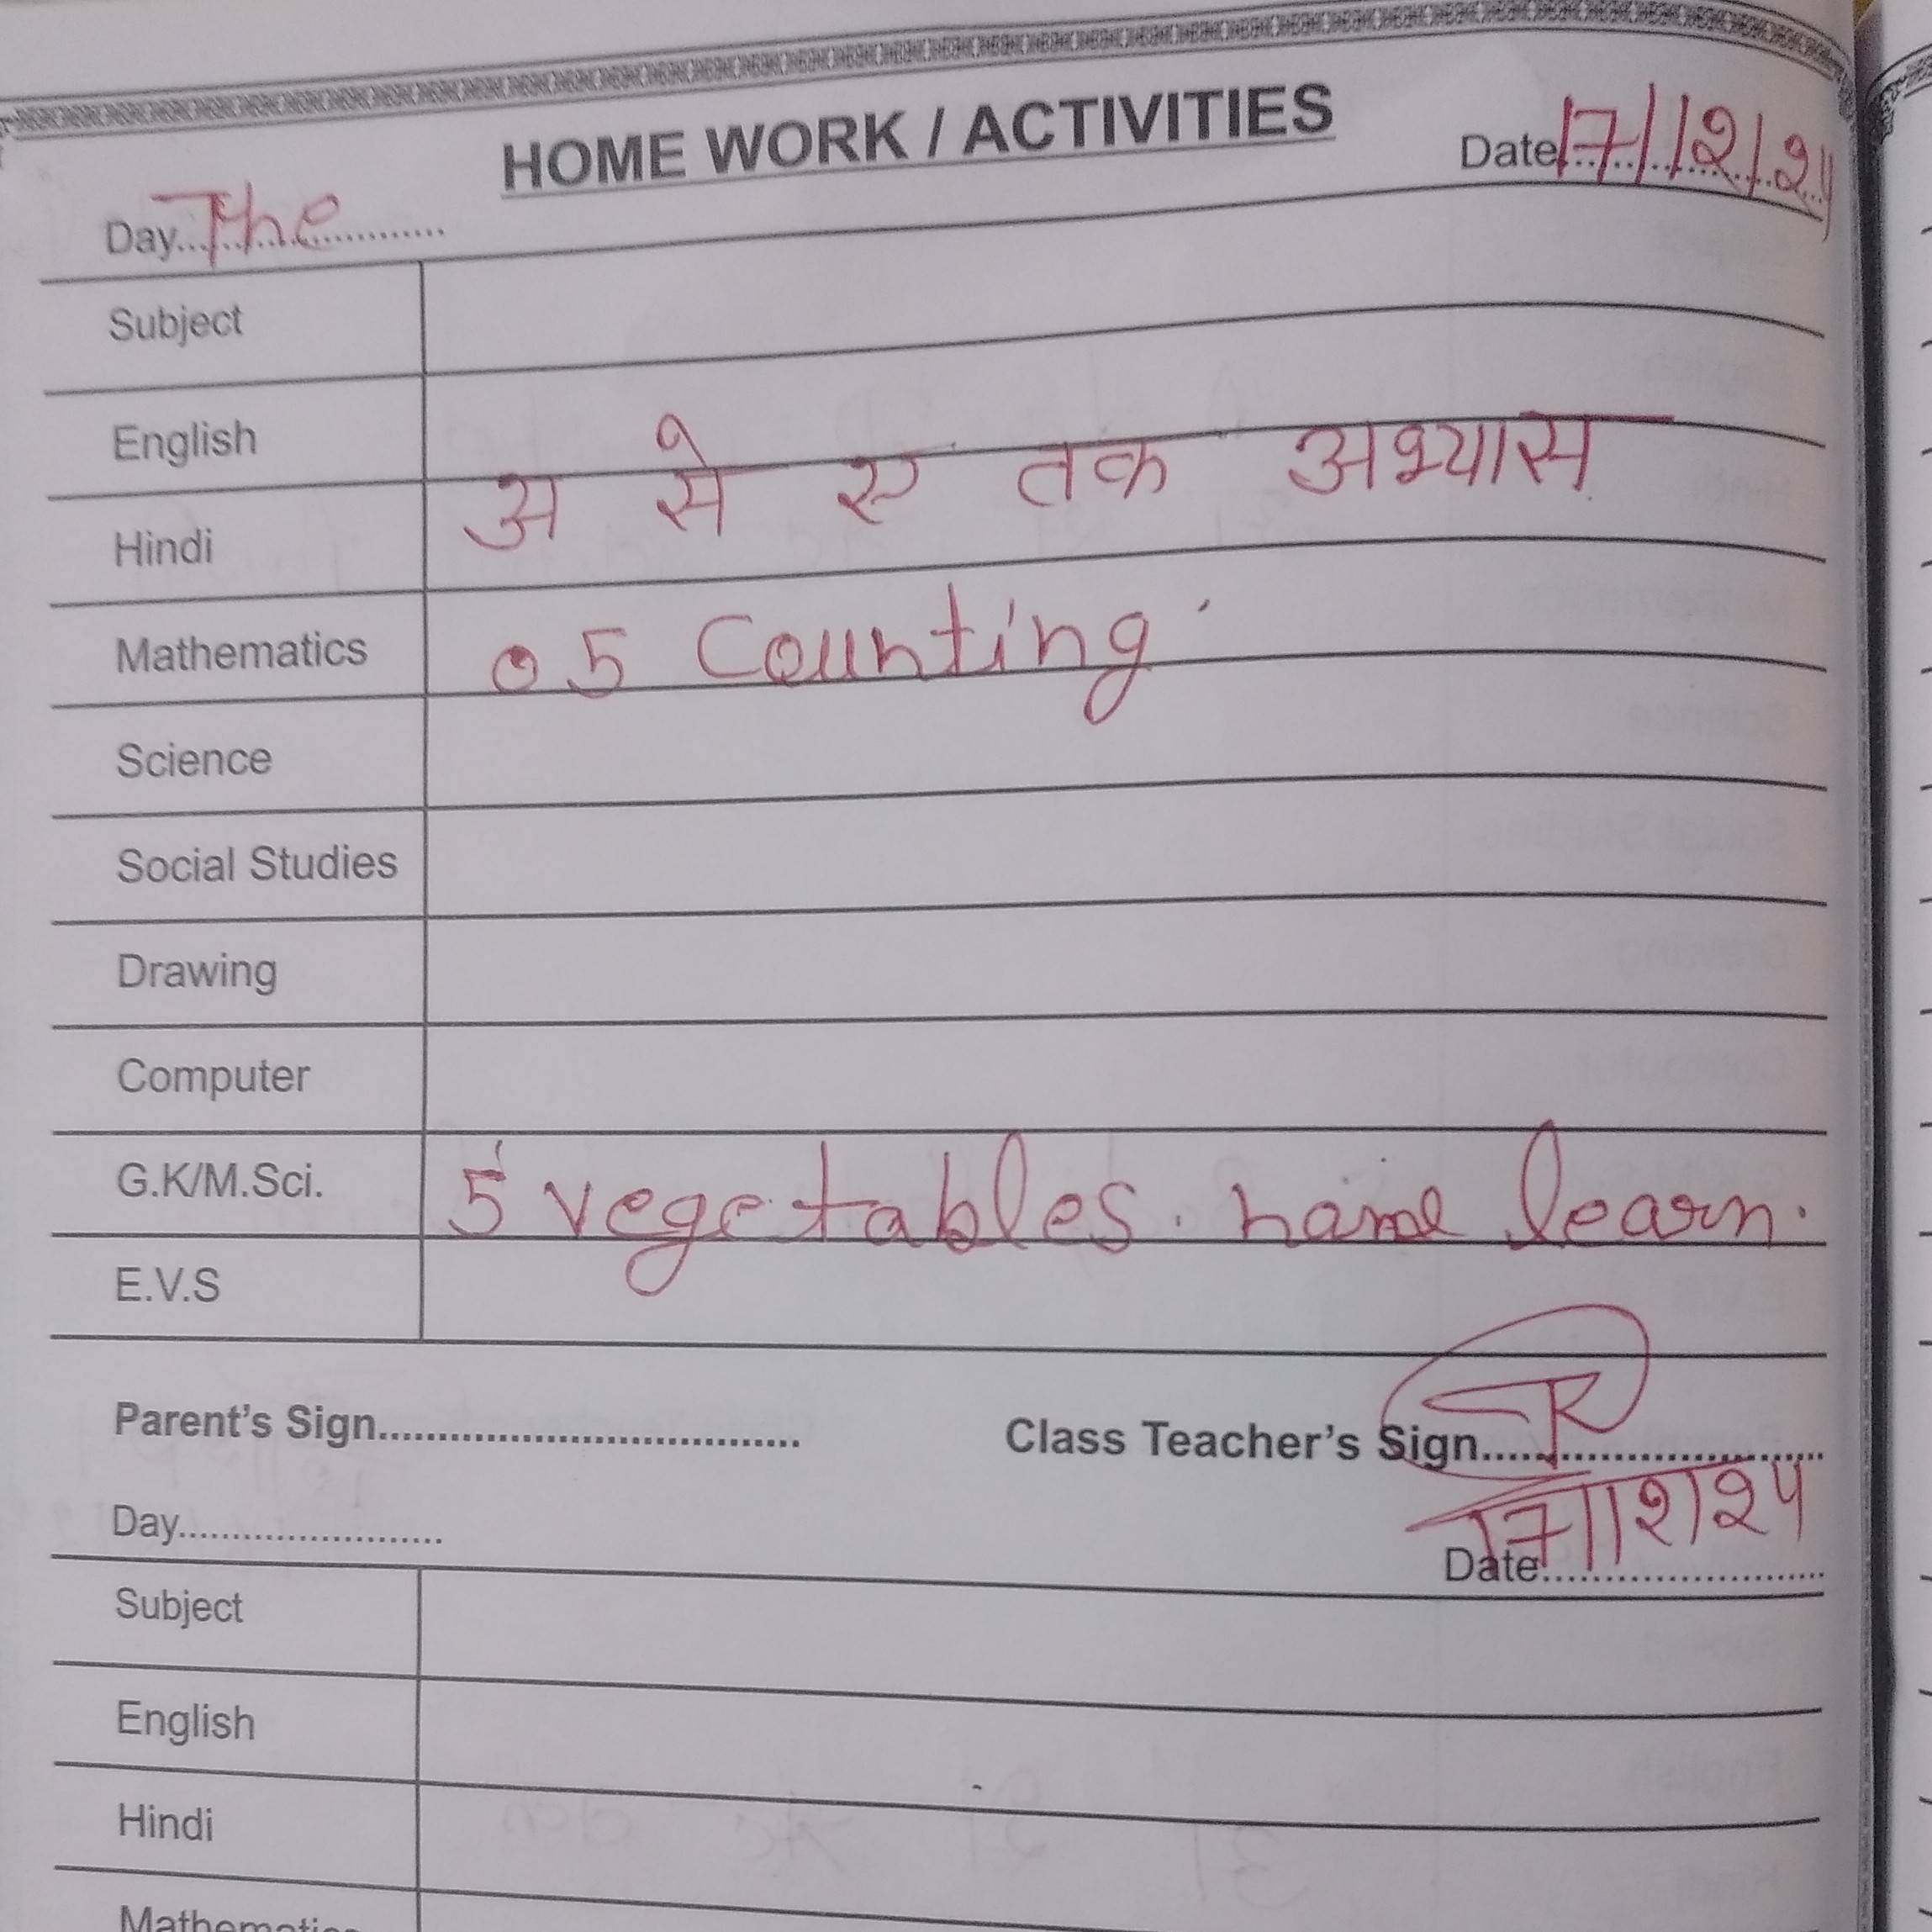 HOME WORK / ACTIVITIES
Day...The............ Date17/12/24
Subject
English
Hindi अ से ए तक अभ्यास
Mathematics 05 Counting
Science
Social Studies
Drawing
Computer
G.K/M.Sci. 5 vegetables. name learn.
E.V.S
Parent's Sign................................... Class Teacher's Sign..............................
17/12/24
Day......................... Date..........................
Subject
English
Hindi